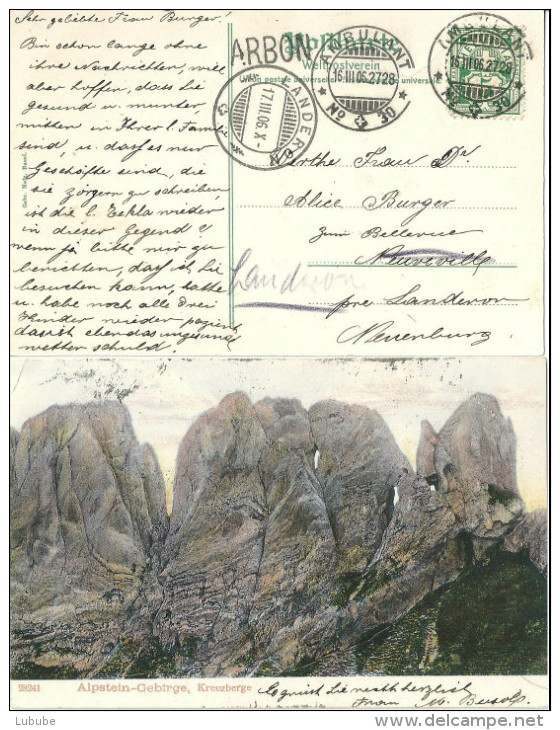 Sehr geliebte Frau Burger!
Bin schon lange ohne
ihre Nachrichten, will
aber hoffen, dass Sie
gesund u. munter
mitten in Ihrer l. Famile
sind, u. dass es nur
Geschäfte sind, die
sie zörgern zu schreiben,
ist die l. Tekla wieder
in dieser Gegend?
wenn ja bitte mir zu
berichten, dass ich Sie
besuchen kann,
u. habe noch alle drei
Kinder wieder
wetter schuld.
Gebr. Metz, Basel.
ARBON
Postkarte
Weltpostverein
Union postale universelle
AMBULANT
16.III.06.2728
No 30
AMBULANT
16.III.06.2728
No 30
LANDERON
17.III.06.X-
Werthe Frau Dr.
Alice Burger
zum Bellevue
Neuveville
Landeron
pre Landeron
Neuenburg.
28241 Alpstein-Gebirge, Kreuzberge
Es grüsst Sie recht herzlich
Frau M.
Lubube
delcampe.net